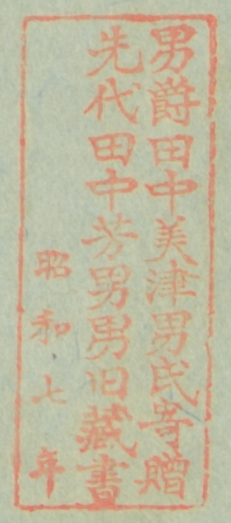 男爵田中美津男氏寄贈
先代田中芳男男旧蔵書
昭和七年